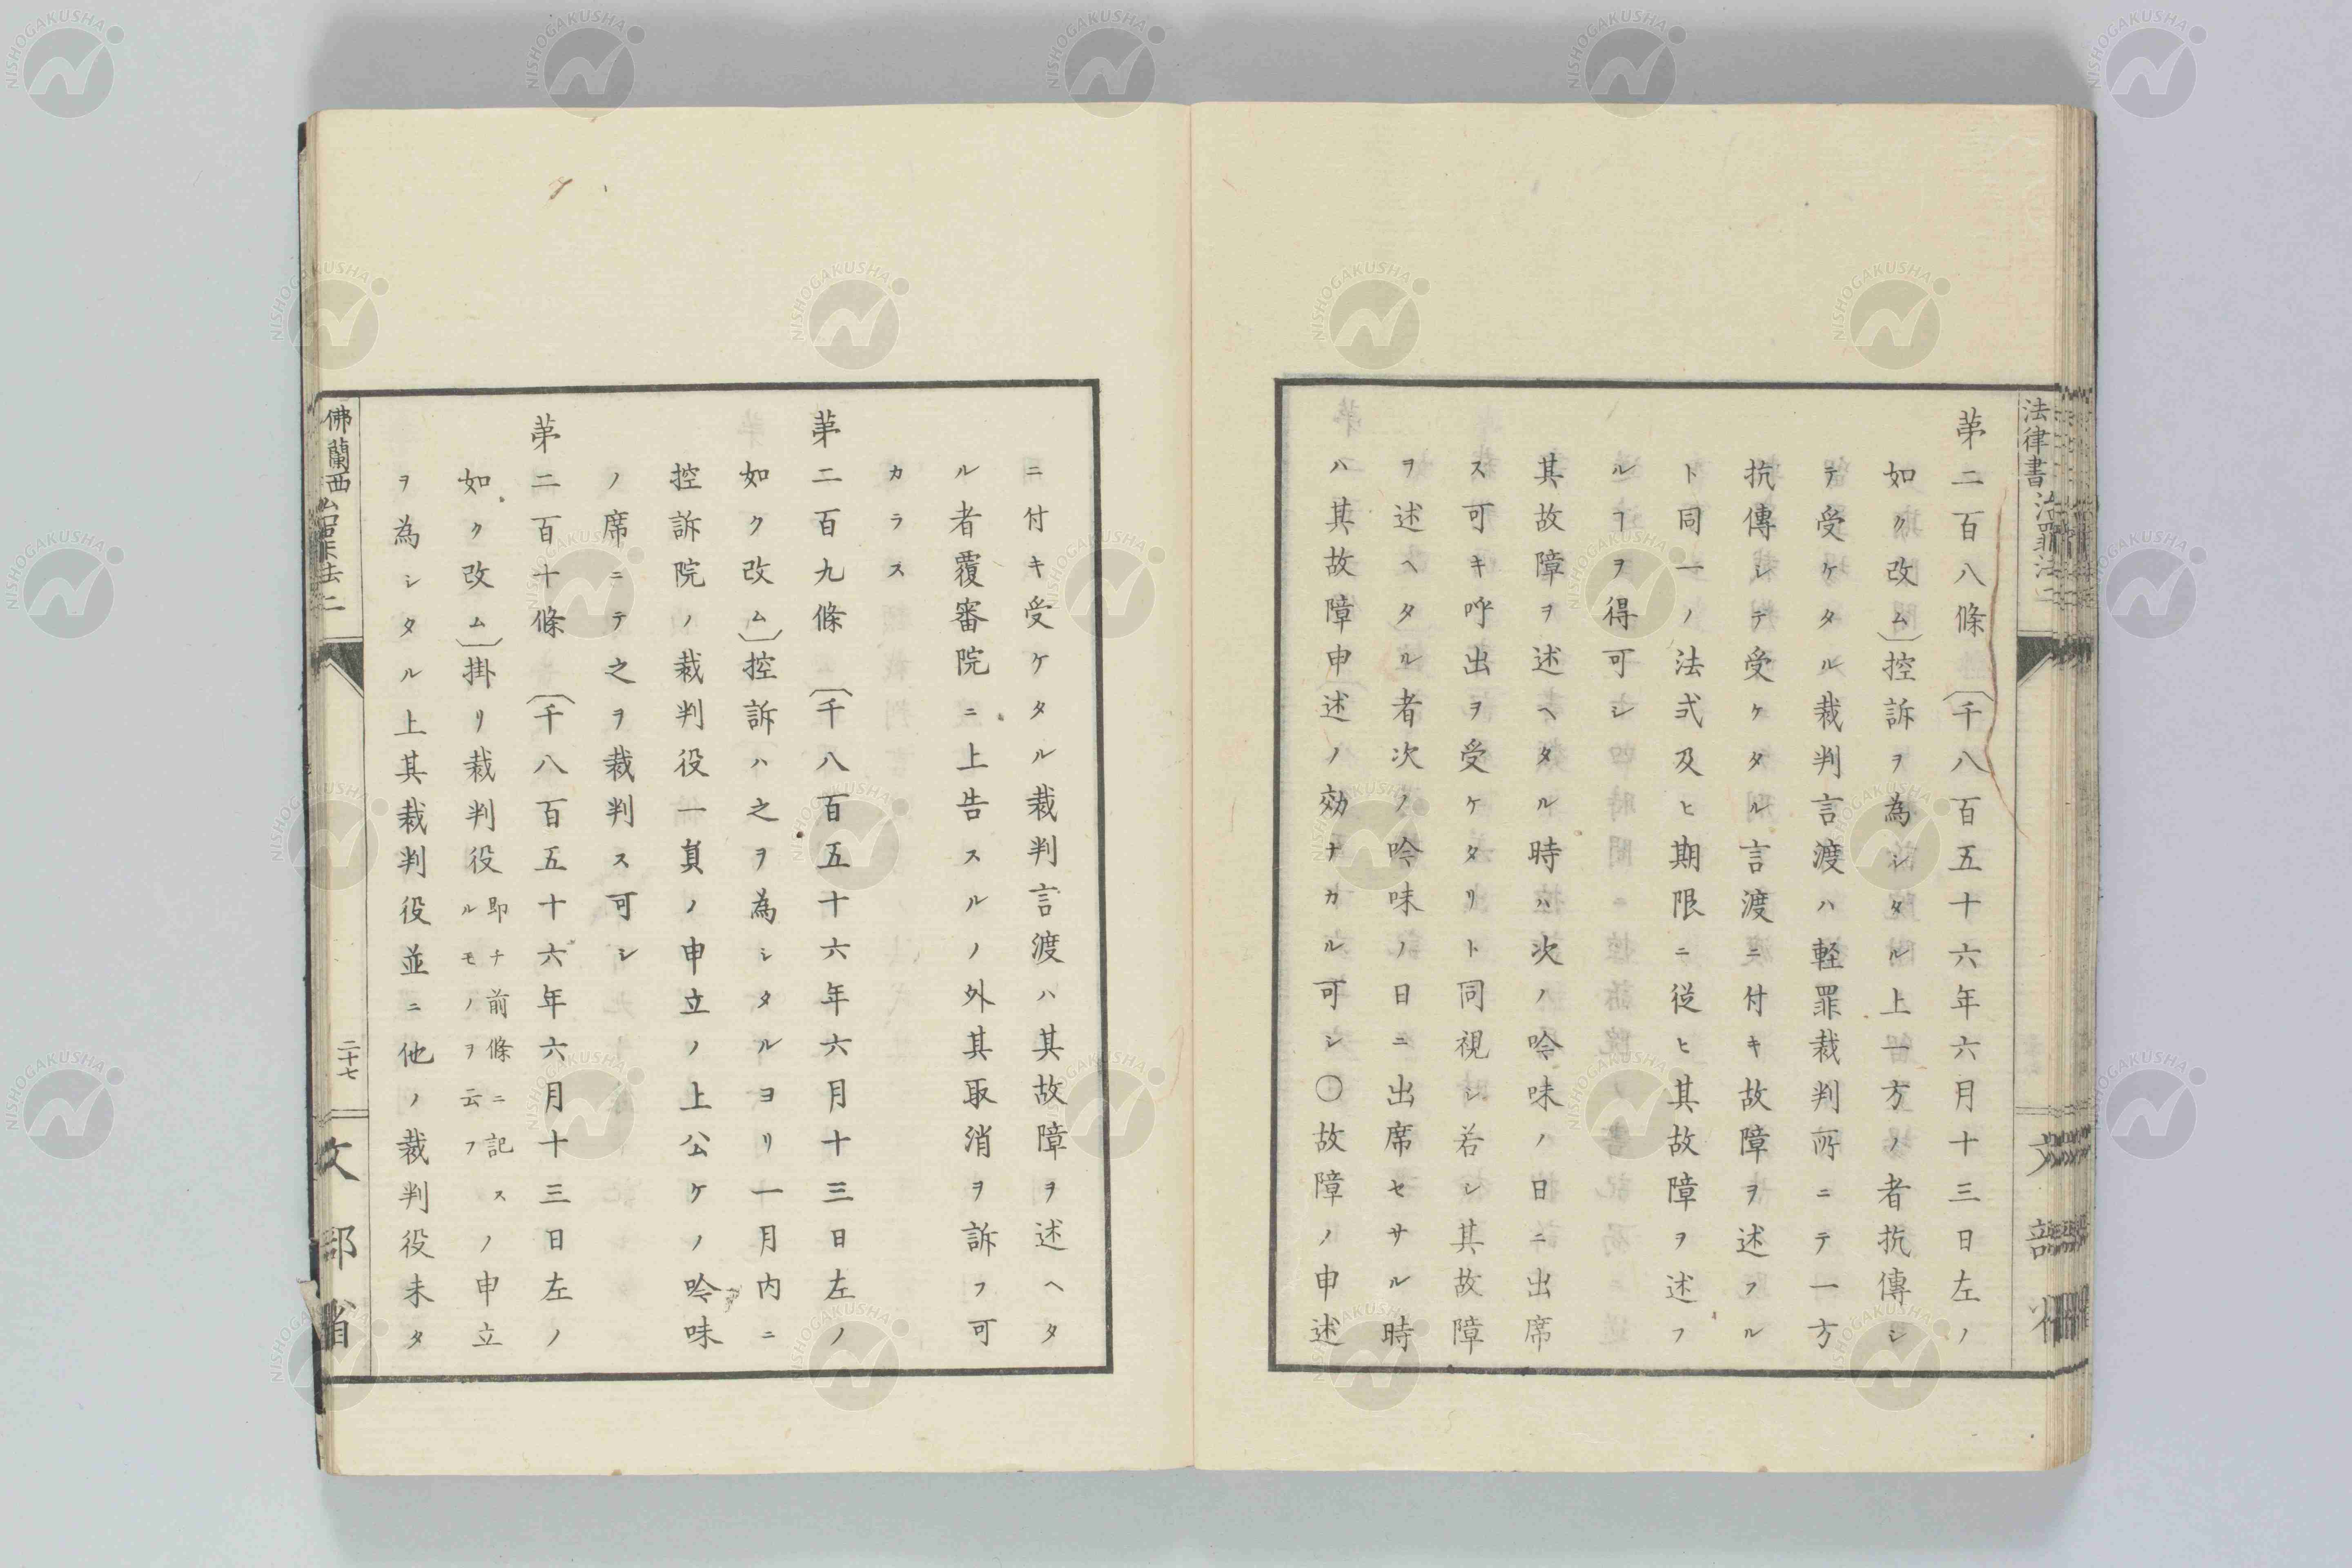 第二百八條 〔千八百五十六年六月十三日左ノ
如ク改ム〕控訴ヲ為シタル上一方ノ者抗傳シ
テ受ケタル裁判言渡ハ軽罪裁判所ニテ一方
抗傳シテ受ケタル言渡ニ付キ故障ヲ述フル
ト同一ノ法式及ヒ期限ニ従ヒ其故障ヲ述フ
ルヿヲ得可シ
其故障ヲ述ヘタル時ハ次ノ吟味ノ日ニ出席
ス可キ呼出ヲ受ケタリト同視シ若シ其故障
ヲ述ヘタル者次ノ吟味ノ日ニ出席セサル時
ハ其故障申述ノ効ナカル可シ〇故障ノ申述
ニ付キ受ケタル裁判言渡ハ其故障ヲ述ヘタ
ル者覆審院ニ上告スルノ外其取消ヲ訴フ可
カラス
第二百九條 〔千八百五十六年六月十三日左ノ
如ク改ム〕控訴ハ之ヲ為シタルヨリ一月内ニ
控訴院ノ裁判役一員ノ申立ノ上公ケノ吟味
ノ席ニテ之ヲ裁判ス可シ
第二百十條 〔千八百五十六年六月十三日左ノ
如ク改ム〕掛リ裁判役即ナ前條ニ記スルモノヲ云フスノ申立
ヲ為シタル上其裁判役並ニ他ノ裁判役未タ
佛蘭西治罪法二
二十七
文部省
NISHOGAKUSHA